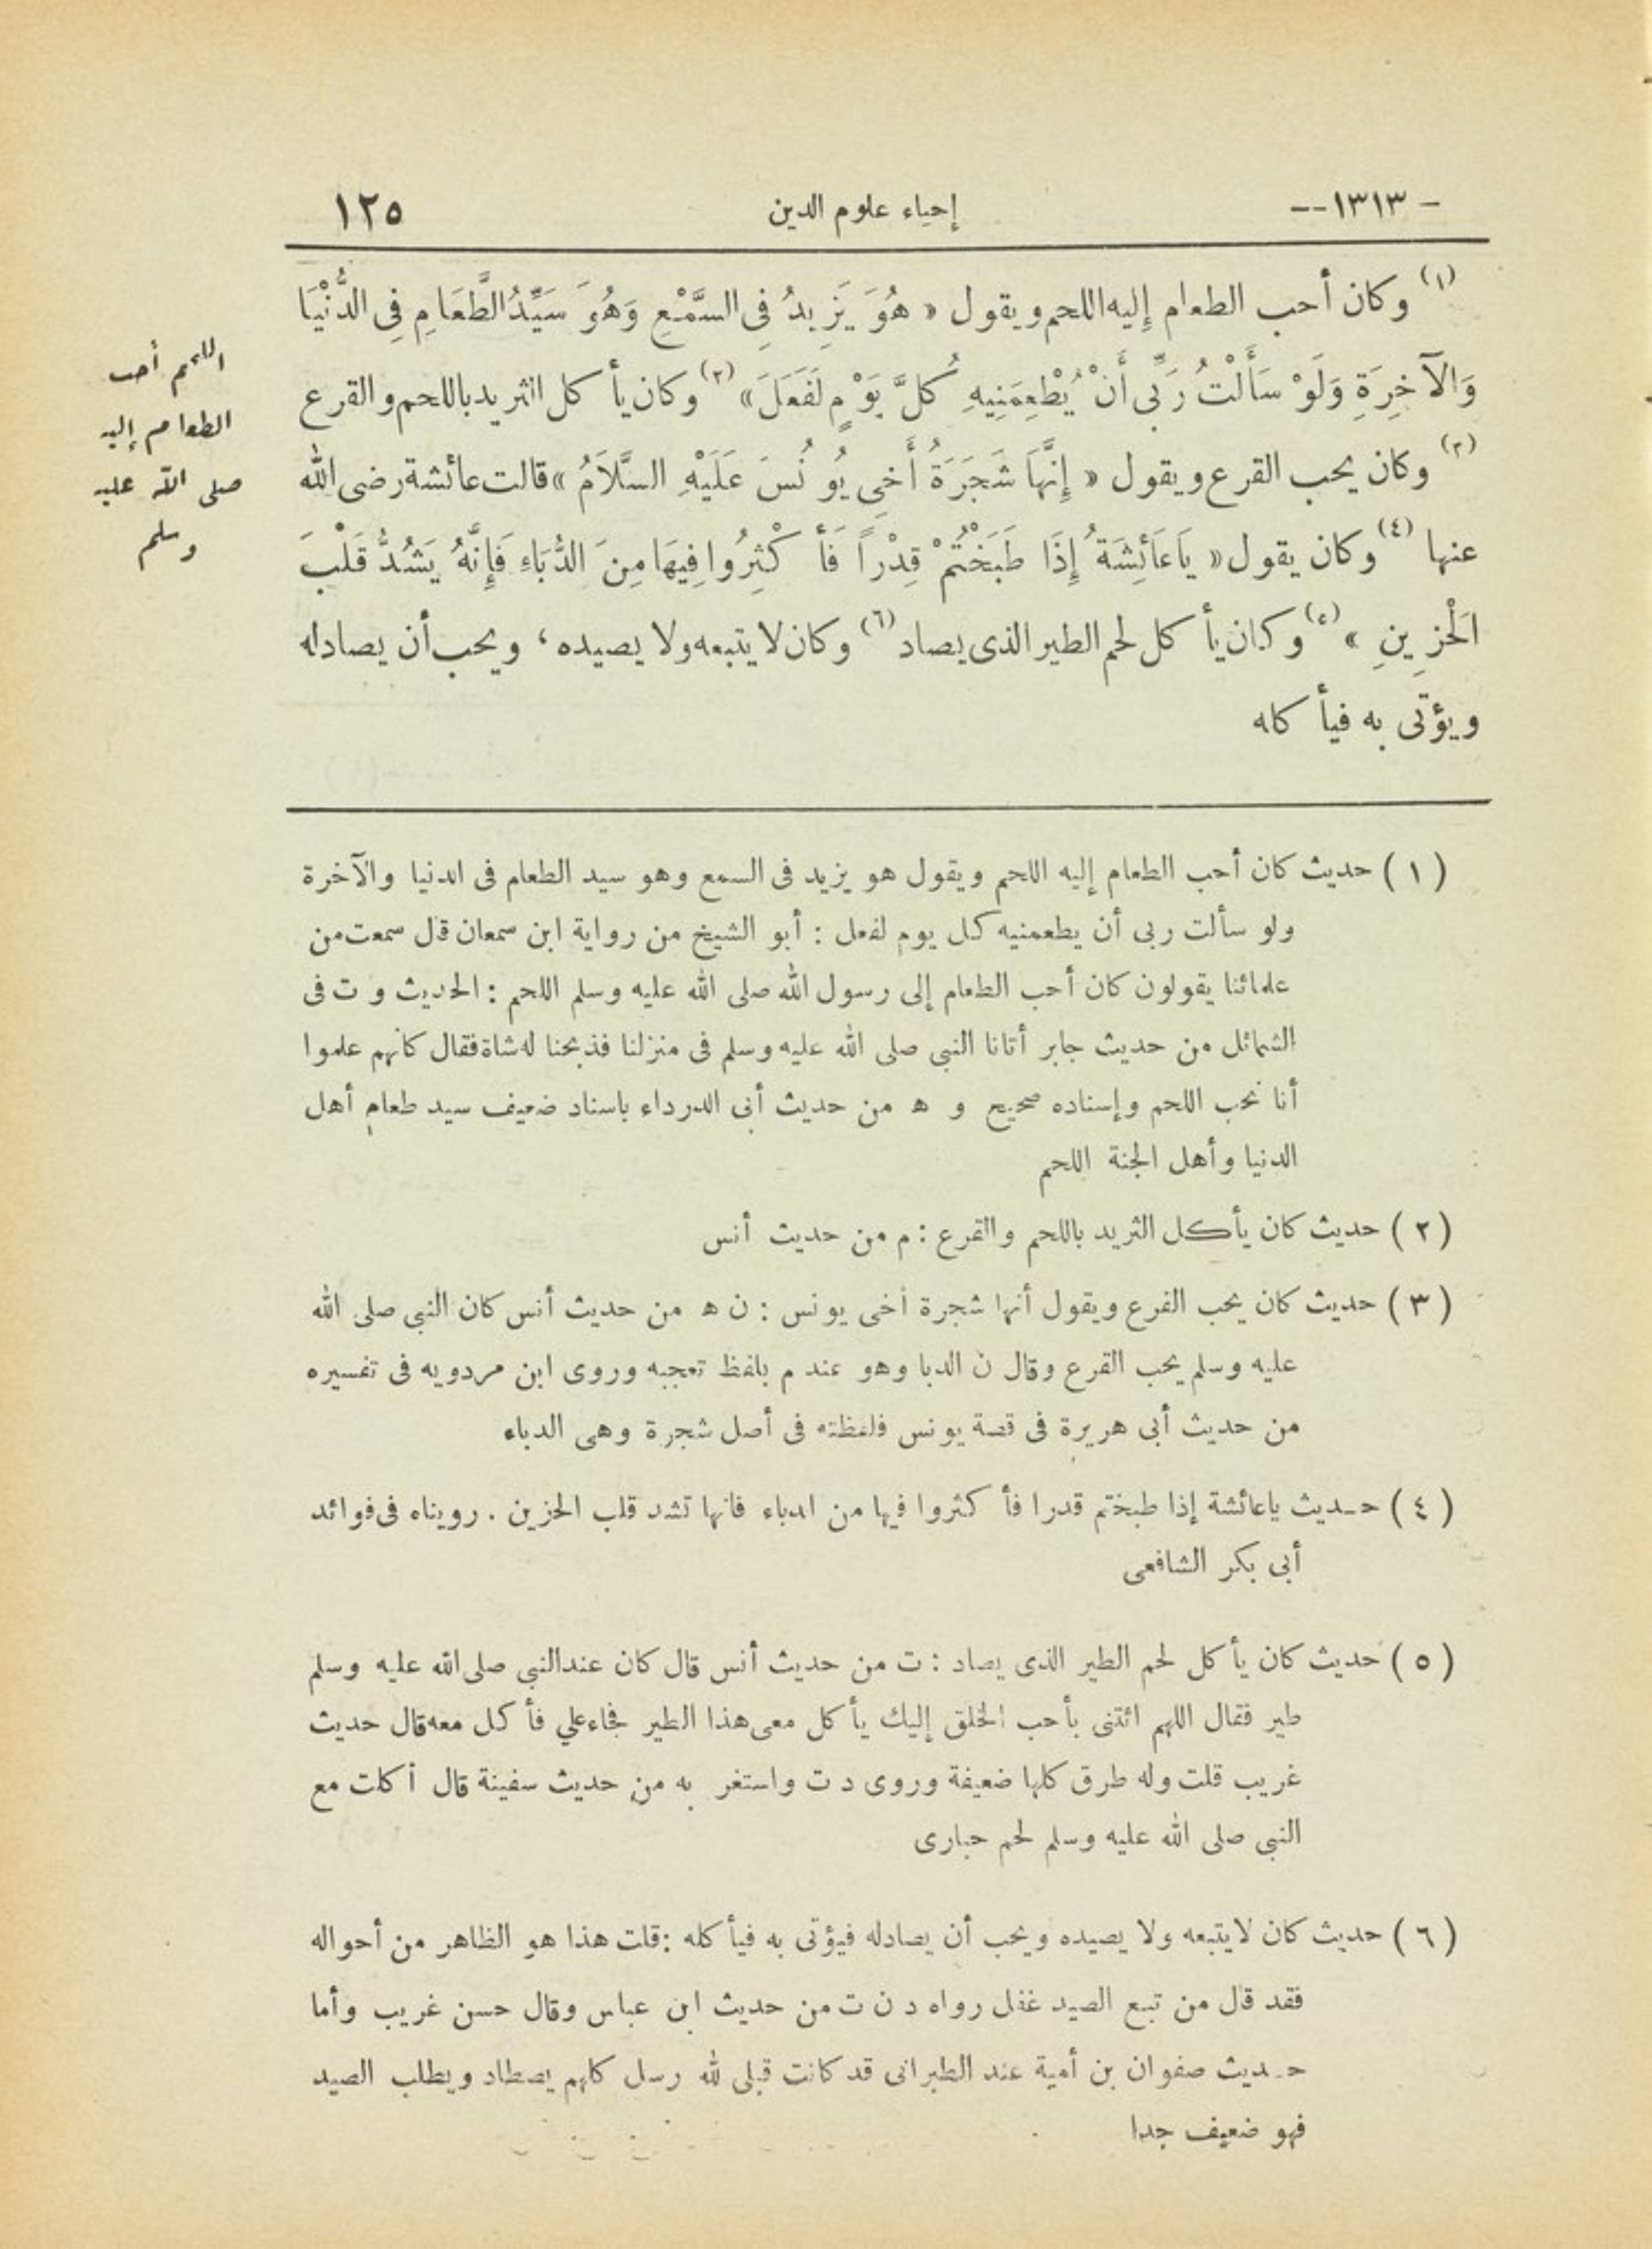 - ١٣١٣ -- إحياء علوم الدين ١٢٥
(١) وكان أحب الطعام إليه اللحم ويقول « هُوَ يَزِيدُ فِى السَّمْعِ وَهُوَ سَيِّدُ الطَّعَامِ فِى الدُّنْيَا
وَالْآخِرَةِ وَلَوْ سَأَلْتُ رَبِّى أَنْ يُطْعِمَنِيهِ كُلَّ يَوْمٍ لَفَعَلَ » (٢) وكان يأكل الثريد باللحم والقرع
(٣) وكان يحب القرع ويقول « إِنَّهَا شَجَرَةُ أَخِى يُونُسَ عَلَيْهِ السَّلَامُ » قالت عائشة رضى الله
عنها (٤) وكان يقول « يَاعَائِشَةُ إِذَا طَبَخْتُمْ قِدْراً فَأَكْثِرُوا فِيهَا مِنَ الدُّبَاءِ فَإِنَّهُ يَشُدُّ قَلْبَ
الْحَزِينِ » (٥) وكان يأكل لحم الطير الذى يصاد (٦) وكان لا يتبعه ولا يصيده ، ويحب أن يصاد له
ويؤتى به فيأكله
اللحم أحب
الطعام إليه
صلى الله عليه
وسلم
( ١ ) حديث كان أحب الطعام إليه اللحم ويقول هو يزيد فى السمع وهو سيد الطعام فى الدنيا والآخرة
ولو سألت ربى أن يطعمنيه كل يوم لفعل : أبو الشيخ من رواية ابن سمعان قال سمعت من
علمائنا يقولون كان أحب الطعام إلى رسول الله صلى الله عليه وسلم اللحم : الحديث و ت فى
الشمائل من حديث جابر أتانا النبى صلى الله عليه وسلم فى منزلنا فذبحنا له شاة فقال كأنهم علموا
أنا نحب اللحم وإسناده صحيح و ه من حديث أبى الدرداء باسناد ضعيف سيد طعام أهل
الدنيا وأهل الجنة اللحم
( ٢ ) حديث كان يأكل الثريد باللحم والقرع : م من حديث أنس
( ٣ ) حديث كان يحب القرع ويقول أنها شجرة أخى يونس : ن ه من حديث أنس كان النبى صلى الله
عليه وسلم يحب القرع وقال ن الدبا وهو عند م بلفظ تعجبه وروى ابن مردويه فى تفسيره
من حديث أبى هريرة فى قصة يونس فلفظته فى أصل شجرة وهى الدباء
( ٤ ) حـديث ياعائشة إذا طبختم قدرا فأكثروا فيها من الدباء فانها تشد قلب الحزين . رويناه فى فوائد
أبى بكر الشافعى
( ٥ ) حديث كان يأكل لحم الطير الذى يصاد : ت من حديث أنس قال كان عند النبى صلى الله عليه وسلم
طير فقال اللهم ائتنى بأحب الخلق إليك يأكل معى هذا الطير فجاء علي فأكل معه قال حديث
غريب قلت وله طرق كلها ضعيفة وروى د ت واستغر به من حديث سفينة قال أكلت مع
النبى صلى الله عليه وسلم لحم حبارى
( ٦ ) حديث كان لايتبعه ولا يصيده ويحب أن يصادله فيؤتى به فيأكله : قلت هذا هو الظاهر من أحواله
فقد قال من تبع الصيد غفل رواه د ن ت من حديث ابن عباس وقال حسن غريب وأما
حـديث صفوان بن أمية عند الطبرانى قد كانت قبلى لله رسل كلهم يصطاد ويطلب الصيد
فهو ضعيف جدا